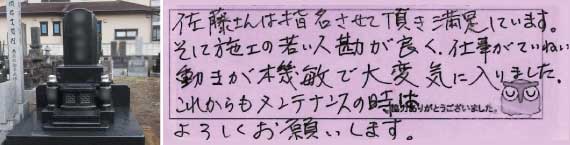 佐藤さんは指名させて頂き満足しています。
そして施工の若い人勘が良く、仕事がていねい
動きが機敏で大変気に入りました。
これからもメンテナンスの時は
ご協力ありがとうございました。
よろしくお願いします。